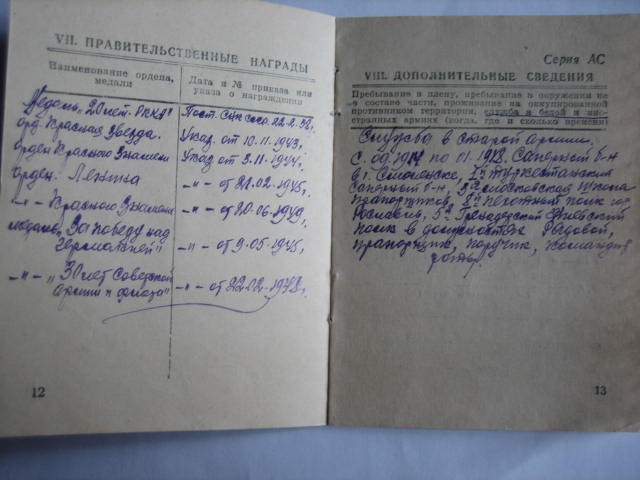 VII. ПРАВИТЕЛЬСТВЕННЫЕ НАГРАДЫ
Наименование ордена, медали
Дата и № приказа или указа о награждении
Медаль "20 лет РККА" Пост. СНК СССР 22.2.38г.
орд. Красная Звезда. Указ. от 10.11.1943г.
Орден Красного Знамени Указ от 3.11.1944г.
Орден. Ленина -"- от 21.02.1945г.
-"- Красного Знамени -"- от 20.06.1949г.
медаль, За победу над
Германией" -"- от 9.05.1945г.
-"- "30 лет Советской
армии и флота" -"- от 22.02.1948г.
12
Серия АС
VIII. ДОПОЛНИТЕЛЬНЫЕ СВЕДЕНИЯ
Пребывание в плену, пребывание в окружении не
в составе части, проживание на оккупированной
противником территории, служба в белой и ино-
странных армиях (когда, где и сколько времени)
Служба в старой армии.
с по 01.1918. Саперный б-н
в г. Смоленске, 1й Туркестанский
Саперный б-н, Московская школа
прапорщиков, пехотный полк гор.
Рославль, 5й Гренадерский Киевский
полк в должностях Рядовой,
прапорщик, поручик, командир
роты.
13